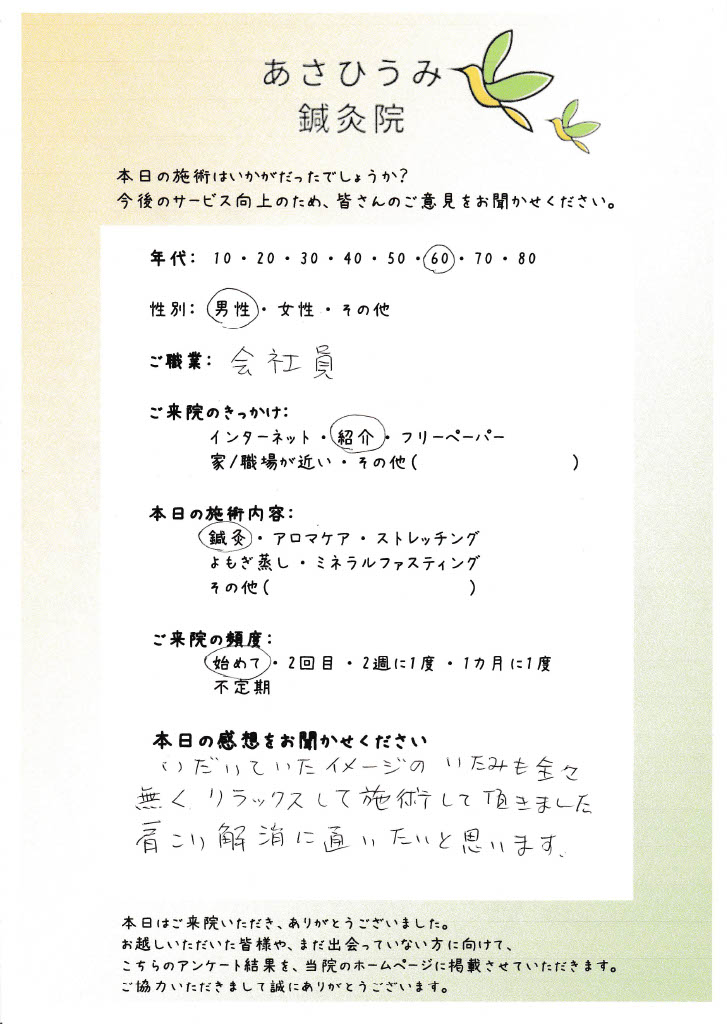 あさひうみ
鍼灸院
本日の施術はいかがだったでしょうか?
今後のサービス向上のため、皆さんのご意見をお聞かせください。
年代: 10・20・30・40・50・60・70・80
性別: 男性・女性・その他
ご職業: 会社員
ご来院のきっかけ:
インターネット・紹介・フリーペーパー
家/職場が近い・その他( )
本日の施術内容:
鍼灸・アロマケア・ストレッチング
よもぎ蒸し・ミネラルファスティング
その他( )
ご来院の頻度:
始めて・2回目・2週に1度・1カ月に1度
不定期
本日の感想をお聞かせください
いだいていたイメージの いたみも全々
無く リラックスして施術して頂きました
肩こり解消に通いたいと思います.
本日はご来院いただき、ありがとうございました。
お越しいただいた皆様や、まだ出会っていない方に向けて、
こちらのアンケート結果を、当院のホームページに掲載させていただきます。
ご協力いただきまして誠にありがとうございます。